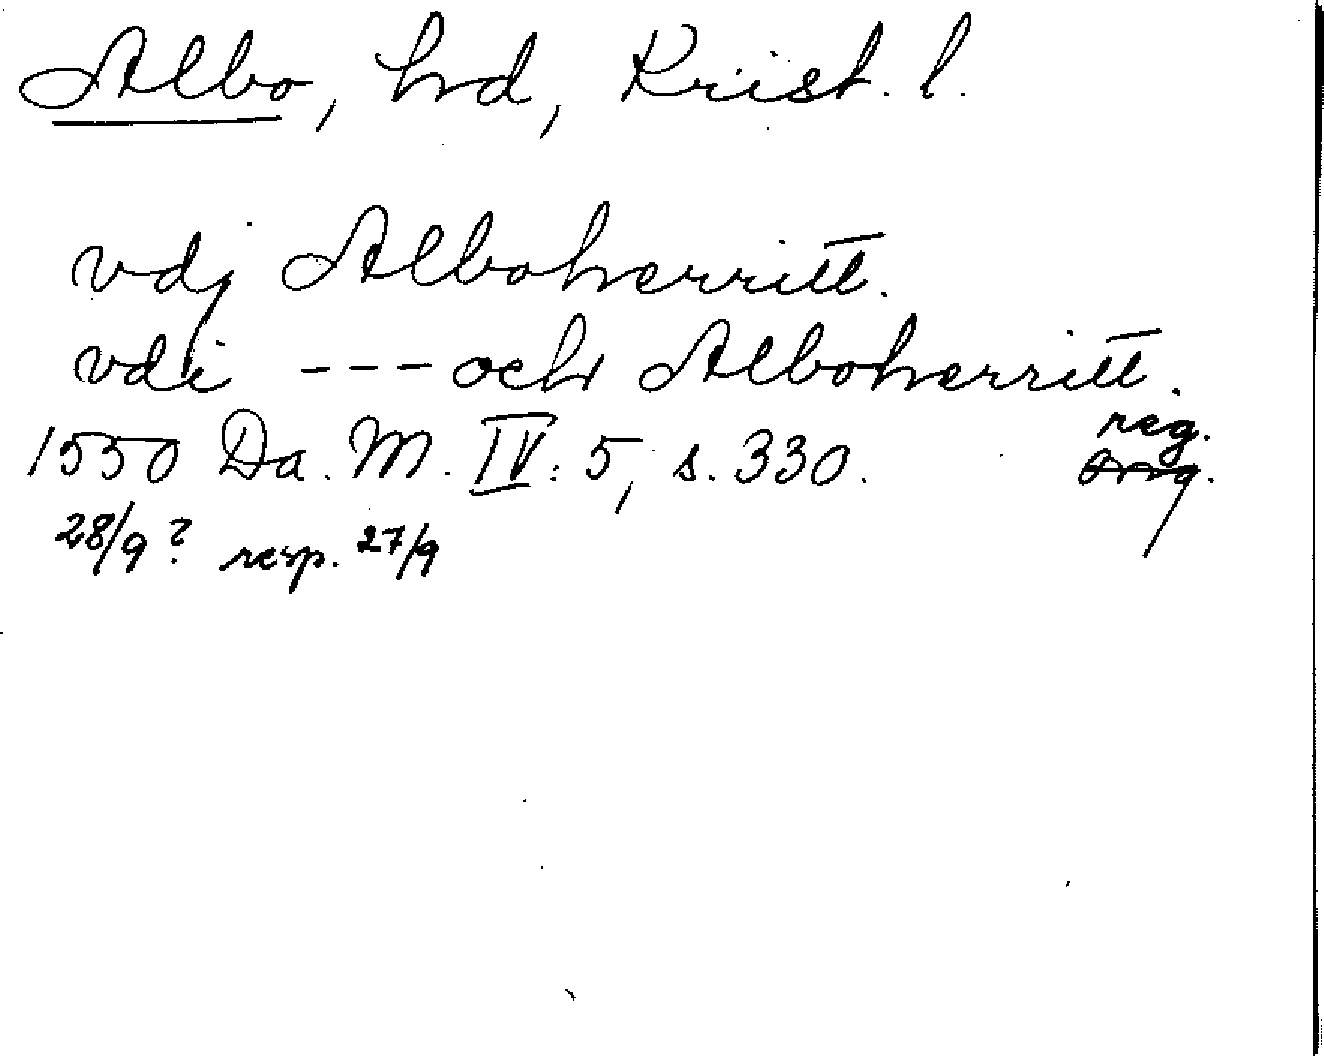 Albo, hrd, Krist. l.
vdj Alboherritt.
vdi --- och Alboherritt.
1550 Da. M. IV: 5, s. 330. reg.
28/9? resp. 27/9